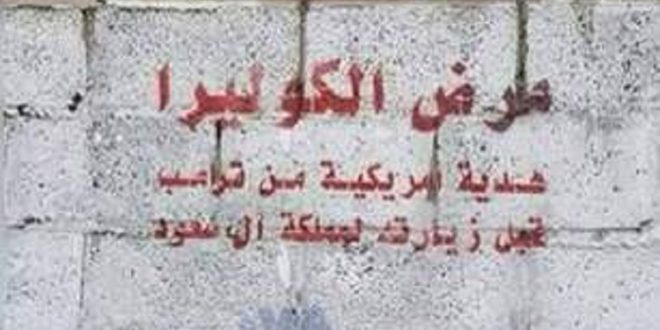 مرض الكوليرا
هدية امريكية من ترامب
قبل زيارته لمملكة آل سعود